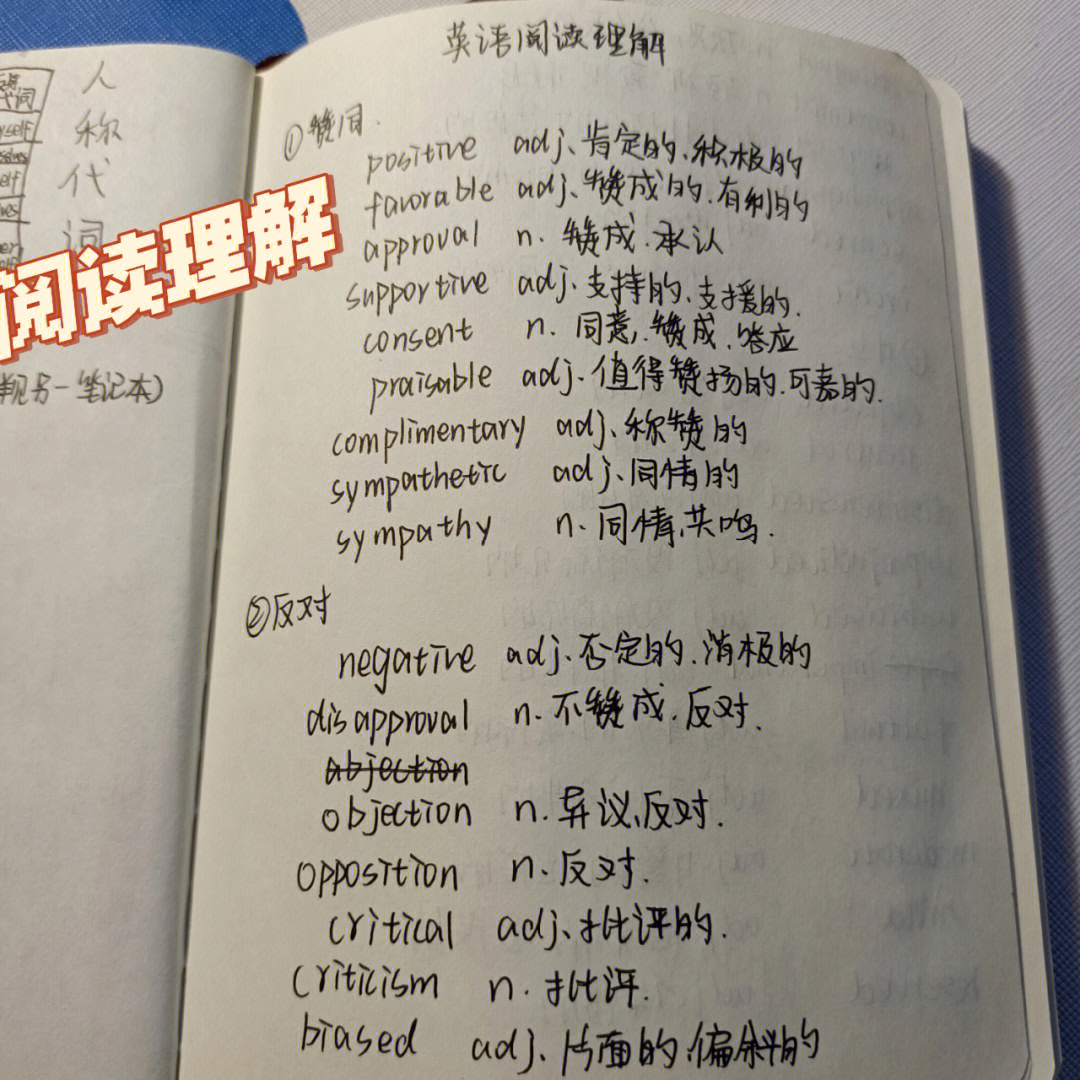 英语阅读理解
①赞同.
positive adj、肯定的、积极的
favorable adj、赞成的、有利的
approval n. 赞成、承认
supportive adj、支持的、支援的.
consent n. 同意, 赞成、答应
praisable adj. 值得赞扬的、可嘉的.
complimentary adj、称赞的
sympathetic adj、同情的
sympathy n. 同情、共鸣.
②反对
negative adj、否定的、消极的
disapproval n. 不赞成、反对.
abjection
objection n. 异议、反对.
opposition n. 反对.
critical adj、批评的.
criticism n. 批评.
biased adj、片面的、偏斜的
人
称
代
词
阅读理解
另一笔记本)